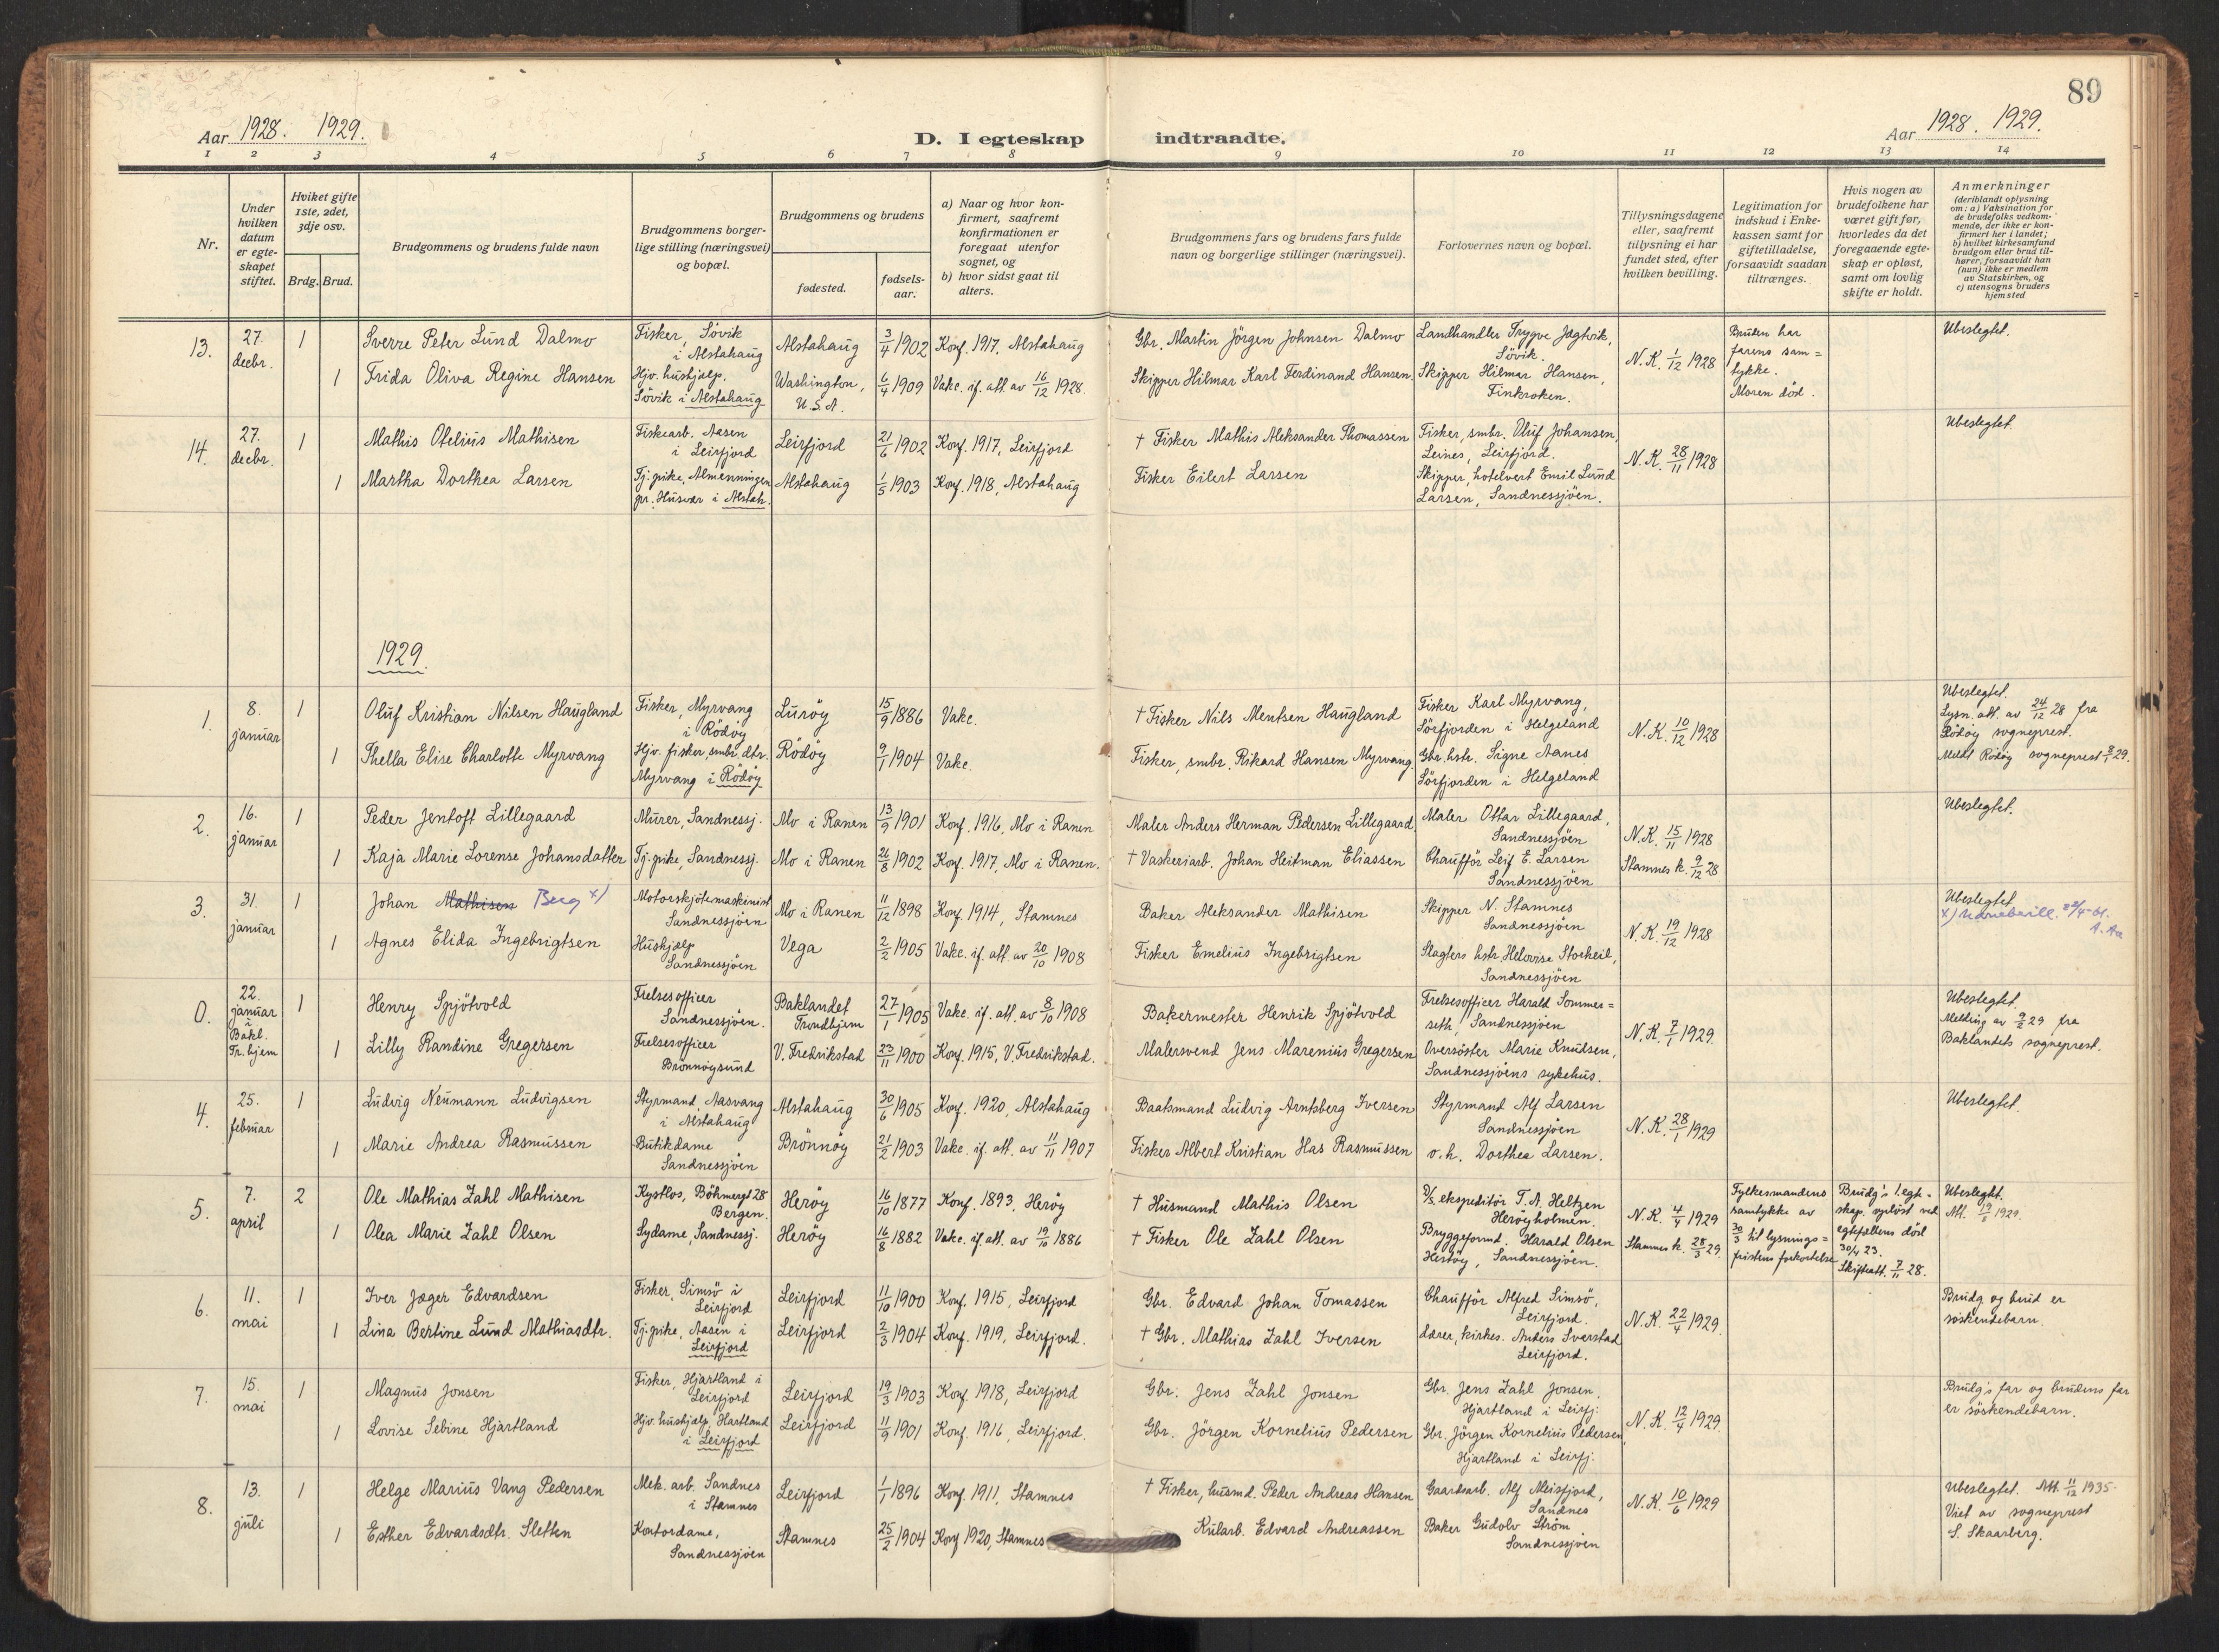 89
Aar 1928. 1929.
D. I egteskap indtraadte.
Aar 1928. 1929.
1 2 3 4 5 6 7 8 9 10 11 12 13 14
Nr.
Under hvilken datum er egteskapet stiftet.
Hviket gifte 1ste, 2det, 3dje osv.
Brdg. Brud.
Brudgommens og brudens fulde navn
Brudgommens borgerlige stilling (næringsvei) og bopæl.
Brudgommens og brudens
fødested.
fødselsaar.
a) Naar og hvor konfirmert, saafremt konfirmationen er foregaat utenfor sognet, og
b) hvor sidst gaat til alters.
Brudgommens fars og brudens fars fulde navn og borgerlige stillinger (næringsvei).
Forlovernes navn og bopæl.
Tillysningsdagene eller, saafremt tillysning ei har fundet sted, efter hvilken bevilling.
Legitimation for indskud i Enkekassen samt for giftetilladelse, forsaavidt saadan tiltrænges.
Hvis nogen av brudefolkene har været gift før, hvorledes da det foregaaende egteskap er opløst, samt om lovlig skifte er holdt.
Anmerkninger (deriblandt oplysning om: a) Vaksination for de brudefolks vedkommende, der ikke er konfirmert her i landet; b) hvilket kirkesamfund brudgom eller brud tilhører, forsaavidt han (hun) ikke er medlem av Statskirken, og c) utensogns bruders hjemsted
13. 27. decbr. 1 Sverre Peter Lund Dalmo Fisker, Sövik i Alstahaug Alstahaug 3/4 1902 Konf. 1917, Alstahaug Gbr. Martin Jörgen Johnsen Dalmo Landhandler Trygve Jagtvik, Sövik. N.K. 1/12 1928 Bruden har farens sam= tykke. Moren död. Ubeslegtet.
1 Frida Oliva Regine Hansen Hjv. hushjælp. Sövik i Alstahaug Washington, U.S.A. 6/4 1909 Vakc. if. att. av 16/12 1928. Skipper Hilmar Karl Ferdinand Hansen. Skipper Hilmar Hansen, Finkroken.
14. 27. decbr. 1 Mathis Otelius Mathisen Fiskearb. Aasen i Leirfjord Leirfjord 21/6 1902 Konf. 1917, Leirfjord † Fisker Mathis Aleksander Thomassen Fisker, smbr. Oluf Johansen, Leines, Leirfjord. N.K. 28/11 1928 Ubeslegtet.
1 Martha Dorthea Larsen Tj.pike, Almenningen pr. Husvær i Alstah. Alstahaug 1/5 1903 Konf. 1918, Alstahaug Fisker Eilert Larsen Skipper, hotelvert Emil Lund Larsen, Sandnessjöen.
1929.
1. 8. januar 1 Oluf Kristian Nilsen Haugland Fisker, Myrvang i Rödöy Luröy 15/9 1886 Vakc. † Fisker Nils Mentsen Haugland Fisker Karl Myrvang, Sörfjorden i Helgeland N.K. 10/12 1928 Ubeslegtet. Lysn. att. av 24/12 28 fra Rödöy sogneprest. Meldt Rödöy sogneprest 8/1 29.
1 Thella Elise Charlotte Myrvang Hjv. fisker, smbr. dtr. Myrvang i Rödöy Rödöy 9/1 1904 Vakc. Fisker, smbr. Rikard Hansen Myrvang. Gbr. hstr. Signe Aanes Sörfjorden i Helgeland
2. 16. januar 1 Peder Jentoft Lillegaard Murer, Sandnessj. Mo i Ranen 13/9 1901 Konf. 1916, Mo i Ranen Maler Anders Herman Pedersen Lillegaard Maler Ottar Lillegaard, Sandnessjöen N.K. 15/11 1928 Ubeslegtet.
1 Kaja Marie Lorense Johansdatter Tj.pike, Sandnessj. Mo i Ranen 26/8 1902 Konf. 1917, Mo i Ranen. † Vaskeriarb. Johan Heitman Eliassen Chaufför Leif E. Larsen Sandnessjöen Stamnes k. 9/12 28
3. 31. januar 1 Johan Mathisen Berg x) Motorskjötemaskinist Sandnessjöen Mo i Ranen 11/12 1898 Konf. 1914, Stamnes Baker Aleksander Mathisen Skipper N. Stamnes Sandnessjöen N.K. 19/12 1928 Ubeslegtet
1 Agnes Elida Ingebrigtsen Hushjælp Sandnessjöen Vega 2/2 1905 Vakc. if. att. av 20/10 1908 Fisker Emelius Ingebrigtsen Slagters hstr. Helovise Storheil, Sandnessjöen
0. 22. januar i Bakl. Tr.hjem 1 Henry Spjötvold Frelsesofficer Sandnessjöen. Baklandet Trondhjem 27/1 1905 Vakc. if. att. av 8/10 1908 Bakermester Henrik Spjötvold Frelsesofficer Harald Sommer= seth, Sandnessjöen N.K. 7/1 1929. Ubeslegtet. Melding av 9/2 29 fra Baklandets sogneprest.
1 Lilly Randine Gregersen Frelsesofficer Brønnøysund V. Fredrikstad 23/11 1900 Konf. 1915, V. Fredrikstad. Malersvend Jens Marenius Gregersen Oversöster Marie Knudsen, Sandnessjöens sykehus.
4. 25. februar 1 Ludvig Neumann Ludvigsen Styrmand, Aasvang i Alstahaug Alstahaug 30/6 1905 Konf. 1920, Alstahaug Baatsmand Ludvig Arntsberg Iversen Styrmand Alf Larsen Sandnessjöen N.K. 28/1 1929 Ubeslegtet.
1 Marie Andrea Rasmussen Butikdame Sandnessjöen Brönnöy 21/2 1903 Vakc. if. att. av 11/11 1907 Fisker Albert Kristian Has Rasmussen o.h. Dorthea Larsen.
5. 7. april 2 Ole Mathias Zahl Mathisen Kystlos, Böhmergt 28 Bergen. Heröy 16/10 1877 Konf. 1893, Heröy † Husmand Mathis Olsen D/s. ekspeditör T. A. Heltzen Heröyholmen. N.K. 4/4 1929 Fylkesmandens samtykke av 30/3 til lysnings= fristens forkortelse Brudg's 1. egte- skap oplöst ved egtefellens död 30/4 23. Skifteatt. 7/11 28. Ubeslegtet. Att. 19/6 1929.
1 Olea Marie Zahl Olsen Sydame, Sandnessj. Heröy 16/8 1882 Vakc. if. att. av 19/10 1886 † Fisker Ole Zahl Olsen Bryggeformd. Harald Olsen Heröy, Sandnessjöen. Stamnes k. 28/3 29.
6. 11. mai 1 Iver Jæger Edvardsen Fisker, Simsö i Leirfjord Leirfjord 11/10 1900 Konf. 1915, Leirfjord Gbr. Edvard Johan Tomassen Chaufför Alfred Simsö, Leirfjord. N.K. 22/4 1929. Brudg og brud er söskendebarn.
1 Lina Bertine Lund Mathiasdtr. Tj.pike, Aasen i Leirfjord Leirfjord 2/3 1904 Konf. 1919, Leirfjord. † Gbr. Mathias Zahl Iversen Lærer, kirkes. Anders Sverstad Leirfjord.
7. 15. mai 1 Magnus Jonsen Fisker, Hjartland i Leirfjord Leirfjord 19/3 1903 Konf. 1918, Leirfjord Gbr. Jens Zahl Jonsen Gbr. Jens Zahl Jonsen, Hjartland i Leirfj. N.K. 12/4 1929. Brudg's far og brudens far er söskendebarn.
1 Lovise Sebine Hjartland Hjv. hushjælp, Hartland i Leirfjord Leirfjord 11/9 1901 Konf. 1916, Leirfjord. Gbr. Jörgen Kornelius Pedersen Gbr. Jörgen Kornelius Pedersen, Hjartland i Leirfj.
8. 13. juli 1 Helge Marius Vang Pedersen Mek. arb. Sandnes i Stamnes Leirfjord 1/1 1896 Konf. 1911, Stamnes † Fisker, husmd. Peder Andreas Hansen Gaardsarb. Alf Meisfjord, Sandnes N.K. 10/6 1929 Ubeslegtet. Att. 11/12 1935. Viet av sogneprest S. Skaarberg.
1 Esther Edvardsdtr. Sletten Kontordame, Sandnessjöen Stamnes 25/2 1904 Konf 1920, Stamnes Kularb. Edvard Andreassen Baker Gudolv Ström Sandnessjöen